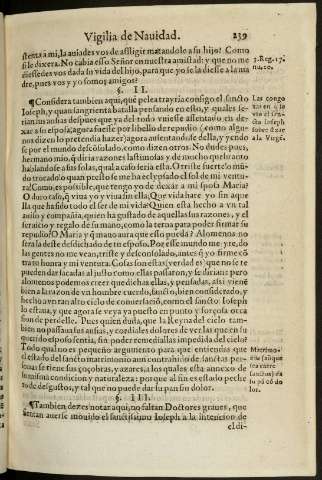 Vigilia de Nauidad. 239
stenta à mi, la auiades vos de affligir matandole a su hijo? Como
si le dixera. No cabia esso Señor en nuestra amistad: y que no me
diessedes vos dada su vida del hijo, para que yo se la diesse a la ma
dre, pues vos y yo somos amigos?
3. Reg. 17.
nu. 20.
§. II.
¶ Considera tambien aqui, que pelea trayria consigo el sancto
Ioseph, y quan sangrienta batalla pensando en esto, y quales se-
rian sus ansias despues que ya del todo se vuiesse assentado en de-
xar a su esposa, agora fuesse por libello de repudio (como algu-
nos dizen lo pretendia hazer) agora ausentandose della, y yendo
se por el mundo desconsolado, como dizen otros. No dudes pues,
hermano mio, q̃ diria razones lastimosas y de mucho quebranto
hablandose a sus solas, qual a caso seria esta. O triste suerte! mũ-
do trocado! o quan presto se me ha eclypsado el sol de mi ventu-
ra! Como, es possible, que tengo yo de dexar a mi esposa Maria?
O duro caso, q̃ viua yo y viua sin ella! Que vida hare yo sin aque
lla que ha sido todo el ser de mi vida? Quien esta hecho a vn tal
auiso y compañia, quien ha gustado de aquellas sus razones, y el
seruicio y regalo de su mano, como la terna para poder firmar su
repudio? O Maria y q̃ mano aura que esso pueda? Alomenos no
sera la deste desdichado de tu esposo. Por esse mundo me yre, do
las gentes no me vean, triste y desconsolado, antes q̃ yo firme cõ
tra tu honra y mi ventura. Cosas son estas (verdad es) que no se te
pueden dar sacadas al justo como ellas passaron, y se dirian: pero
alomenos podemos creer que dichas ellas, y pensadas, assi viene
bien a la razon de vn hombre cuerdo, sancto, bien considerado, y
hecho a vn tan alto cielo de conuersaciõ, como el sancto Ioseph
lo estaua, y que agora se veya ya puesto en punto y forçosa occa
sion de perdelle. Pues quien duda, que la Reyna del cielo tam-
bien no passaua sus ansias, y cordiales dolores de ver las que en su
querido esposo sentia, sin poder remediallas impedida del cielo?
Todo qual no es pequeño argumento para que entiendas que
el estado del sancto matrimonio aun contrahido de sanctas per-
sonas tiene sus çoçobras, y azares, a los quales esta annexo de
su misma condicion y naturaleza: porque al fin es estado peche
ro de disgustos, y tal que no puede dar su pan sin dolor.
Las congo
xas en q̃ se
vio el san-
cto Ioseph
sobre dexar
a la Virgẽ.
Matrimo-
nio (aũ que
sea entre
sanctos) da
su pã cõ do
lor.
§. III.
¶ Tambien deues notar aqui, no faltan Doctores graues, que
sientan auerse mouido el sanctissimo Ioseph a la intencion de
eldi-